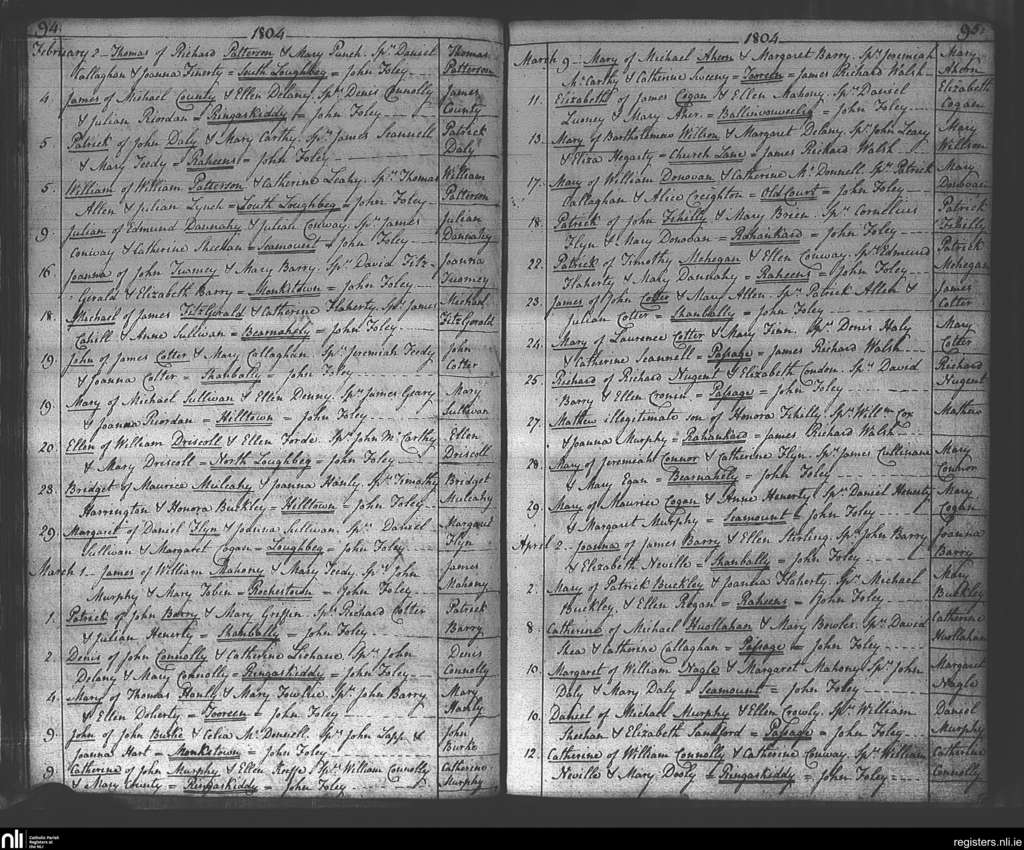 94
1804
February 2 - Thomas of Richard Patterson & Mary Punch. Sprs Daniel
Callaghan & Joanna Finerty = South Loughbeg = John Foley
Thomas
Patterson
4. James of Michael County & Ellen Delany. Sprs Denis Connolly
& Julian Reordan = Ringaskiddy = John Foley
James
County
5. Patrick of John Daly & Mary Carthy. Sprs James Scannell
& Mary Teedy = Raheens = John Foley
Patrick
Daly
5. William of William Patterson & Catherine Leahy. Sprs Thomas
Allen & Julian Lynch = South Loughbeg = John Foley
William
Patterson
9. Julian of Edmund Dannahy & Juliah Conway. Sprs James
Conway & Catherine Sheehan = Seamount = John Foley
Julian
Dannahy
16. Joanna of John Twomey & Mary Barry. Sprs David Fitz-
Gerald & Elizabeth Barry = Monkstown = John Foley
Joanna
18. Michael of James FitzGerald & Catherine Flaherty. Sprs James
Cahill & Anne Sullivan = Bearnahely = John Foley
Michael
FitzGerald
19. John of James Cotter & Mary Callaghan. Sprs Jeremiah Teedy
& Joanna Cotter = Shanbally = John Foley
John
Cotter
19. Mary of Michael Sullivan & Ellen Denny. Sprs James Geary
& Joanna Riordan = Hilltown = John Foley
Mary
Sullivan
20. Ellen of William Driscoll & Ellen Forde. Sprs John McCarthy
& Mary Driscoll = North Loughbeg = John Foley
Ellen
Driscoll
28. Bridget of Maurice Mulcahy & Joanna Hanly. Sprs Timothy
Harrington & Honora Buckley = Hilltown = John Foley
Bridget
Mulcahy
29. Margaret of Daniel Flyn & Joanna Sullivan. Sprs Daniel
Sullivan & Margaret Cogan = Loughbeg = John Foley
Margaret
Flyn
March 1 - James of William Mahony & Mary Teedy. Sprs John
Murphy & Mary Tobin = Rochestown = John Foley
James
Mahony
1. Patrick of John Barry & Mary Griffin. Sprs Richard Cotter
& Julian Henerty = Shanbally = John Foley
Patrick
Barry
2. Denis of John Connolly & Catherine Lichane. Sprs John
Delany & Mary Connolly = Ringaskiddy = John Foley
Denis
Connolly
4. Mary of Thomas Hanly & Mary Towhie. Sprs John Barry
& Ellen Doherty = Tooreen = John Foley
Mary
Hanly
9. John of John Burke & Celia McDonnell. Sprs John Sapp &
Joanna Hart = Monkstown = John Foley
John
Burke
9. Catherine of John Murphy & Ellen Sprs William Connolly
& Mary County = Ringaskiddy = John Foley
Catherine
Murphy
95
1804
March 9 - Mary of Michael Ahern & Margaret Barry. Sprs Jeremiah
McCarthy & Catherine Sweeny = Tooreen = James Richard Walsh
Mary
Ahern
11. Elizabeth of James Cogan & Ellen Mahony. Sprs Daniel
Looney & Mary Aher = = John Foley
Elizabeth
Cogan
13. Mary of Bartholemew Willson & Margaret Delany. Sprs John Leary
& Eliza Hegarty = Church Lane = James Richard Walsh
Mary
Willson
17. Mary of William Donovan & Catherine McDonnell. Sprs Patrick
Callaghan & Alice Creighton = Old Court = John Foley
Mary
Donovan
18. Patrick of John Fihilly & Mary Brien. Sprs Cornelius
Flyn & Mary Donovan = Rahankard = John Foley
Patrick
Fihilly
22. Patrick of Timothy Mehegan & Ellen Conway. Sprs Edmund
Flaherty & Mary Dannahy = Raheens = John Foley
Patrick
Mehegan
23. James of John Cotter & Mary Allen. Sprs Patrick Allen &
Julian Cotter = Shanbally = John Foley
James
Cotter
24. Mary of Laurence Cotter & Mary Finn. Sprs Denis Haly
& Catherine Scannell = Passage = James Richard Walsh
Mary
Cotter
25. Richard of Richard Nugent & Elizabeth Condon. Sprs David
Barry & Ellen Cronin = Passage = John Foley
Richard
Nugent
27. Mathew illegitimate son of Honora Fihilly. Sprs Willm Cox
& Joanna Murphy = Rahankard = James Richard Walsh
Mathew
28. Mary of Jeremiah Connor & Catherine Flyn. Sprs James Cullinane
& Mary Egan = Bearnahely = John Foley
Mary
Connor
29. Mary of Maurice Cogan & Anne Henerty. Sprs Daniel Henerty
& Margaret Murphy = Seamount = John Foley
Mary
Cogan
April 2 - Joanna of James Barry & Ellen Stirling. Sprs John Barry
& Elizabeth Neville = Shanbally = John Foley
Joanna
Barry
2. Mary of Patrick Buckley & Joanna Flaherty. Sprs Michael
Buckley & Ellen Rogan = Raheens = John Foley
Mary
Buckley
8. Catherine of Michael Huollahan & Mary Bowler. Sprs David
Shea & Catherine Callaghan = Passage = John Foley
Catherine
Huollahan
10. Margaret of William Nagle & Margaret Mahoney. Sprs John
Daly & Mary Daly = Seamount = John Foley
Margaret
Nagle
10. Daniel of Michael Murphy & Ellen Crowly. Sprs William
Sheehan & Elizabeth Sandford = Passage = John Foley
Daniel
Murphy
12. Catherine of William Connolly & Catherine Conway. Sprs William
Neville & Mary Dooly = Ringaskiddy = John Foley
Catherine
Connolly
nli
Catholic Parish
Registers at
the NLI
registers.nli.ie